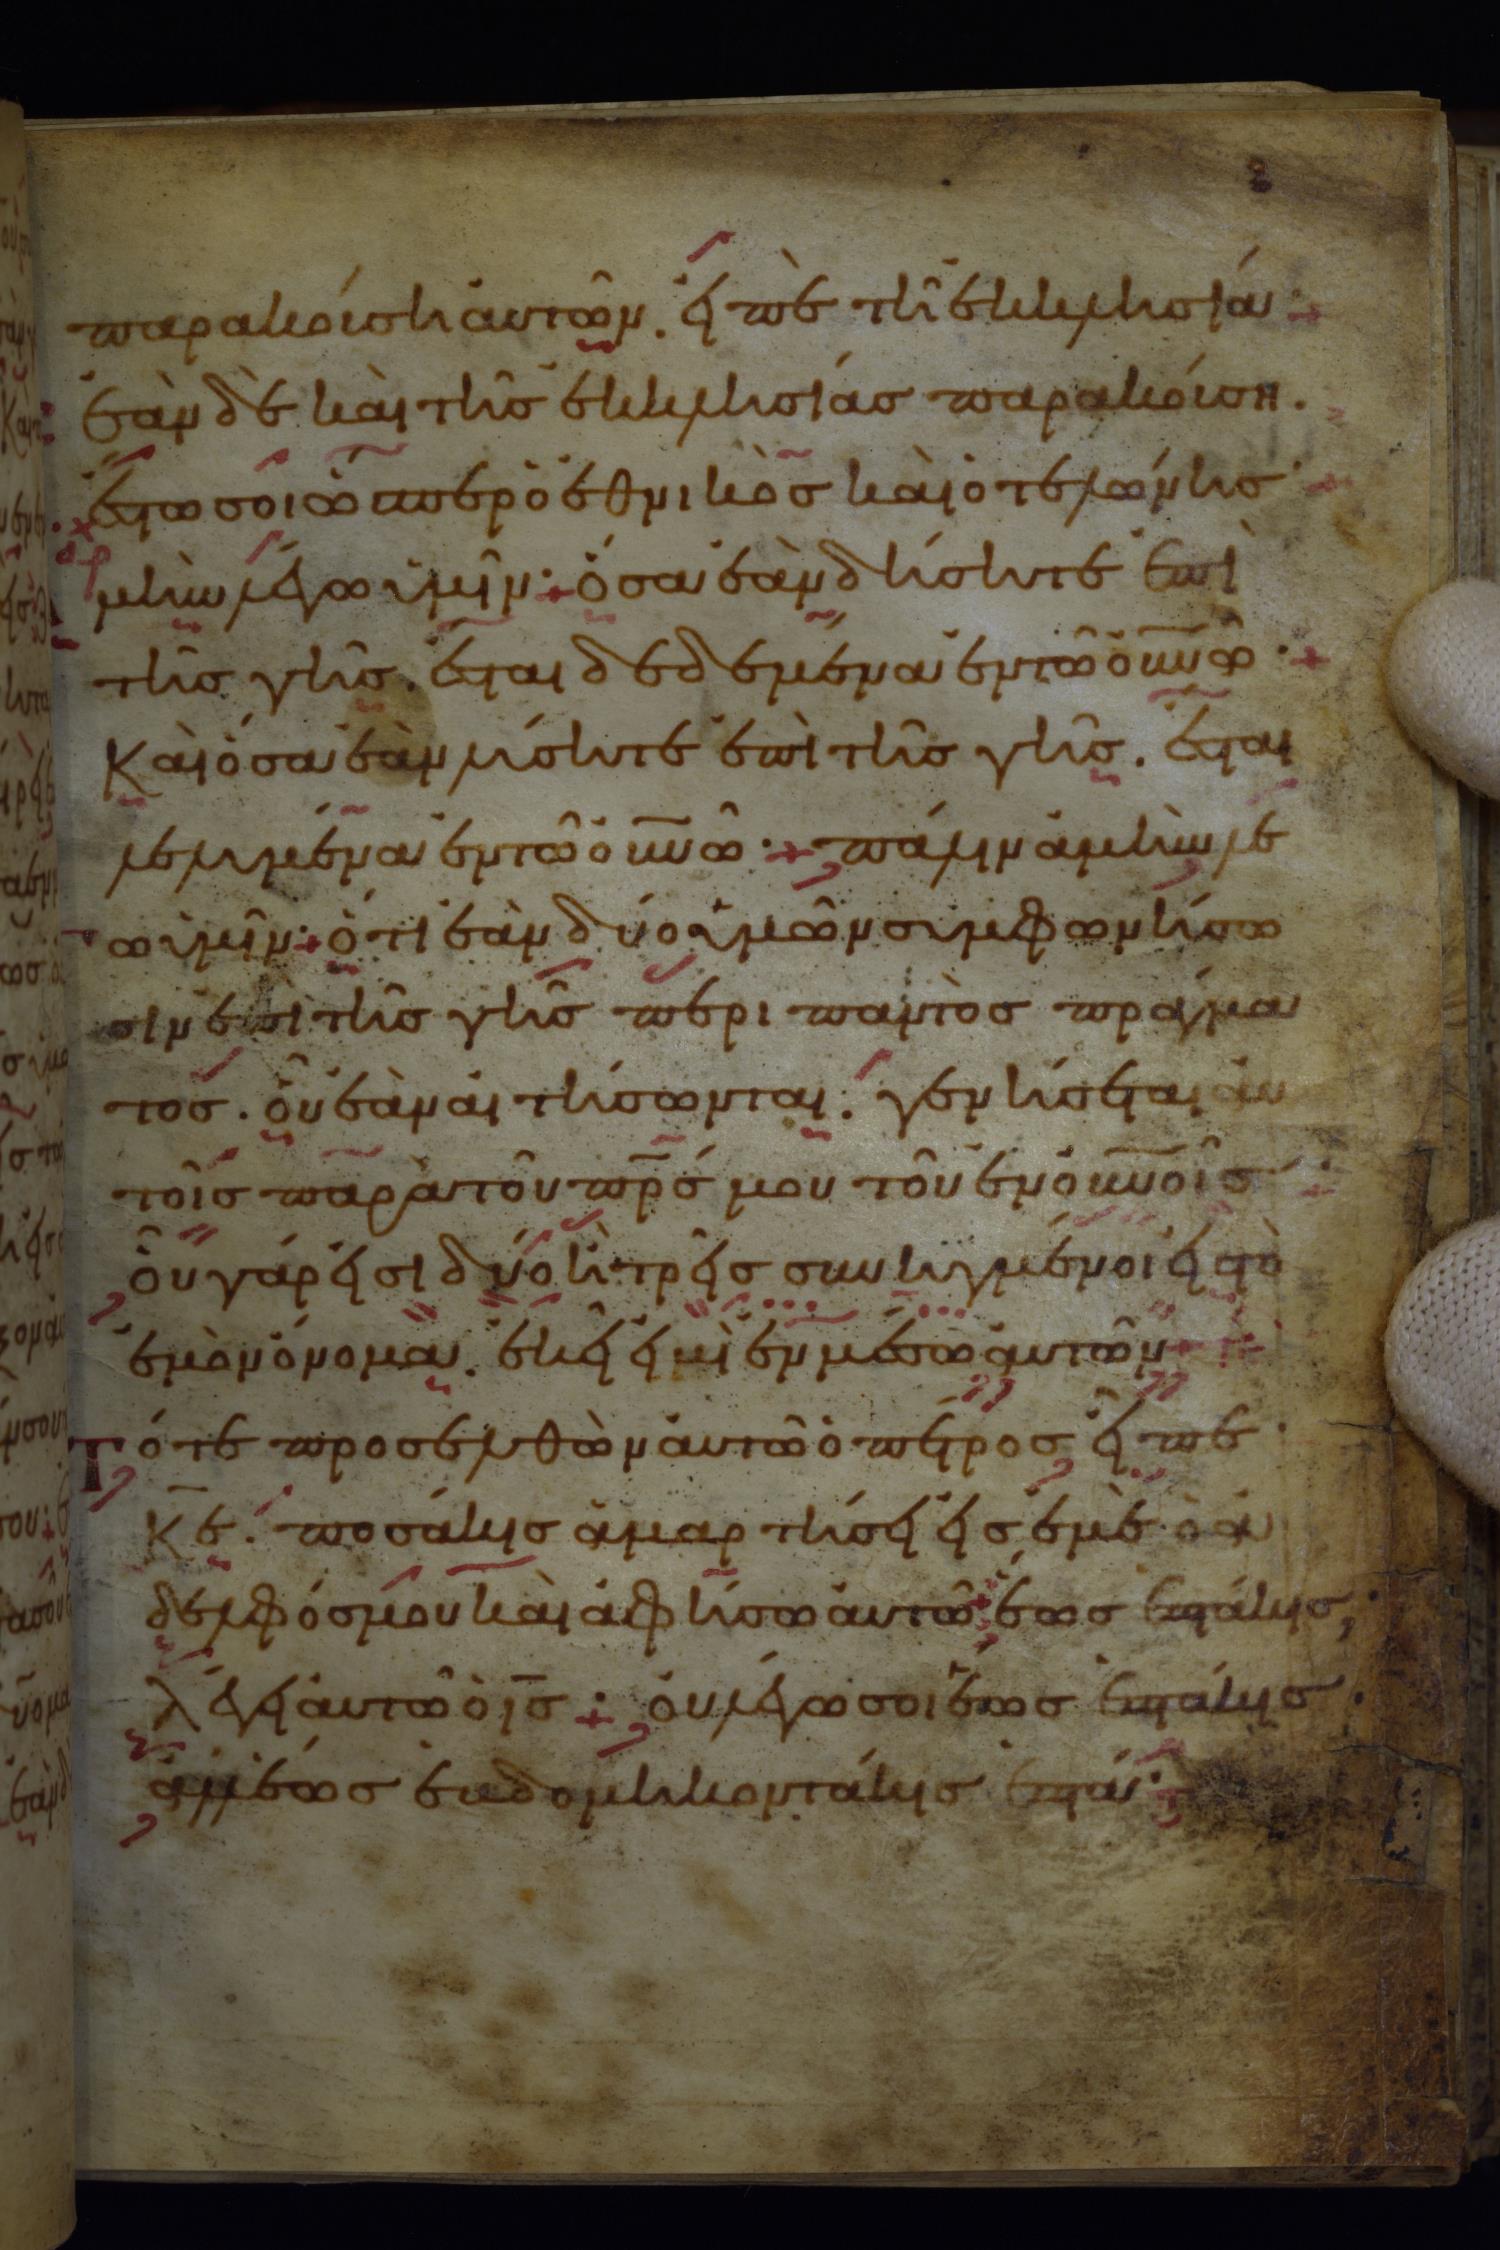 παρακούση αυτῶν. εἰπὲ τῆ ἐκκλησία·
ἐὰν δὲ καὶ τῆς ἐκκλησίας παρακούση.
ἔστω σοι ὥσπερ ὁ ἐθνικὸς καὶ ὁ τελώνης·
ἀμὴν λέγω ὑμῖν· ὅσα ἐὰν δήσητε ἐπὶ
τῆς γῆς. ἔσται δεδεμένα ἐν τῶ ουνῶ·
Καὶ ὅσα ἐὰν λύσητε ἐπὶ τῆς γῆς. ἔσται
λελυμένα ἐν τῶ ουνῶ· πάλιν ἀμὴν λέ
γω ὑμῖν· ὅτι ἐὰν δύο ὑμῶν συμφωνήσω
σιν ἐπὶ τῆς γῆς περι παντὸς πράγμα
τος. οὗ ἐὰν αἰτήσωνται. γενήσεται αυ
τοῖς παρὰ τοῦ πρς μου τοῦ ἐν ουνοῖς·
Οὗ γάρ εἰσι δύο ἢ τρεῖς συνηγμένοι εἰς τὸ
ἐμὸν ὄνομα. ἐκεῖ εἰμὶ ἐν μέσω αὐτῶν·
Τότε προσελθὼν αὐτῶ ὁ πέτρος εἶπε·
Κε. ποσάκις ἁμαρτήσει εἰς ἐμὲ ὁ ἀ
δελφός μου καὶ ἀφήσω αὐτῶ· ἕως ἑπτάκις;
λέγει αὐτῶ ὁ ις· οὐ λέγω σοι ἕως ἑπτάκις.
ἀλλ' ἕως ἑβδομηκοντάκις ἑπτά·